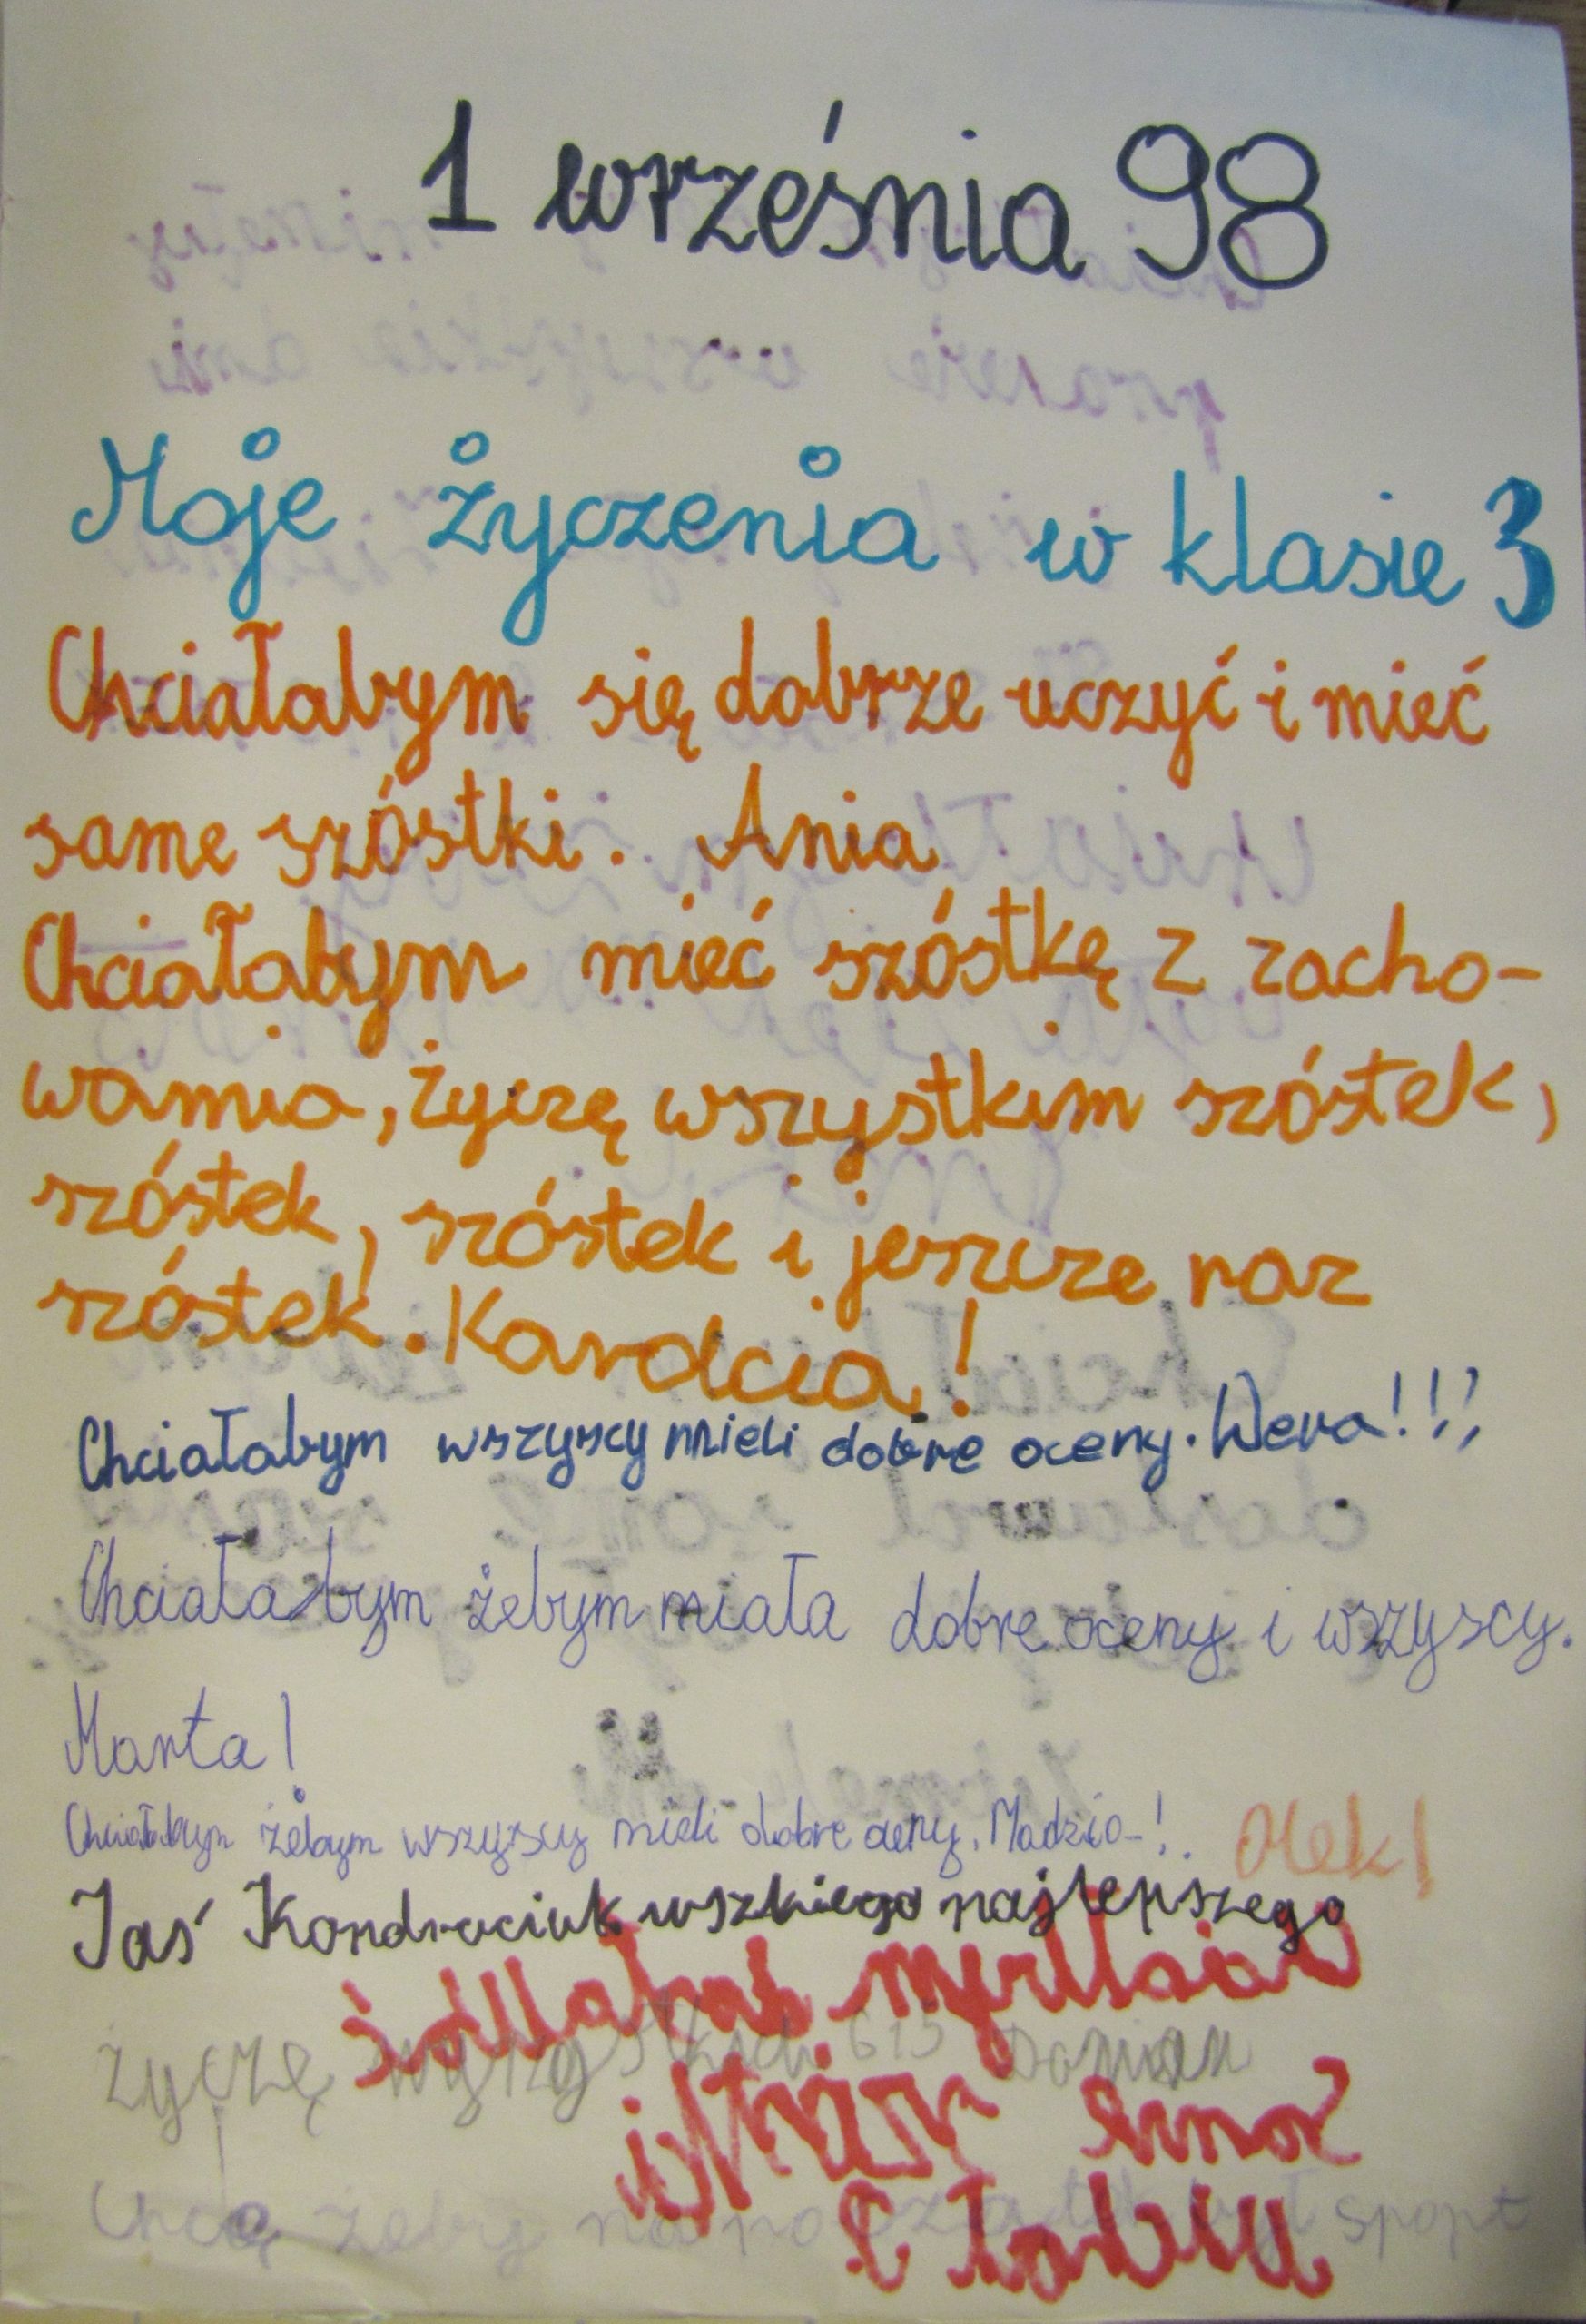 1 września 98
Moje życzenia w klasie 3
Chciałabym się dobrze uczyć i mieć
same szóstki. Ania
Chciałabym mieć szóstkę z zacho-
wania, życzę wszystkim szóstek,
szóstek, szóstek i jeszcze raz
szóstek. Karolcia!
Chciałabym wszyscy mieli dobre oceny. Wera!!!
Chciałabym żebym miała dobre oceny i wszyscy.
Marta!
Chciałabym żebym wszyscy mieli dobre oceny. Madzia-!.
Olek!
Jaś Kondraciuk wszkiego najlepszego
Życzę 6 i 5 Damian
Chcę żeby na był sport